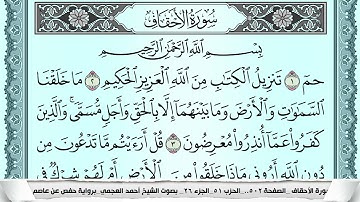 سُورَةُ الأَحْقَافِ
بِسْمِ اللَّهِ الرَّحْمَٰنِ الرَّحِيمِ
حمٓ ١ تَنزِيلُ الْكِتَابِ مِنَ اللَّهِ الْعَزِيزِ الْحَكِيمِ ٢ مَا خَلَقْنَا
السَّمَٰوَٰتِ وَالْأَرْضَ وَمَا بَيْنَهُمَا إِلَّا بِالْحَقِّ وَأَجَلٍ مُّسَمًّى وَالَّذِينَ
كَفَرُوا عَمَّا أُنذِرُوا مُعْرِضُونَ ٣ قُلْ أَرَءَيْتُم مَّا تَدْعُونَ مِن
دُونِ اللَّهِ أَرُونِي مَاذَا خَلَقُوا مِنَ الْأَرْضِ أَمْ لَهُمْ شِرْكٌ فِي
سورة الأحقاف _الصفحة ٥٠٢_ الحزب ٥١_الجزء ٢٦_ بصوت الشيخ أحمد العجمي _برواية حفص عن عاصم